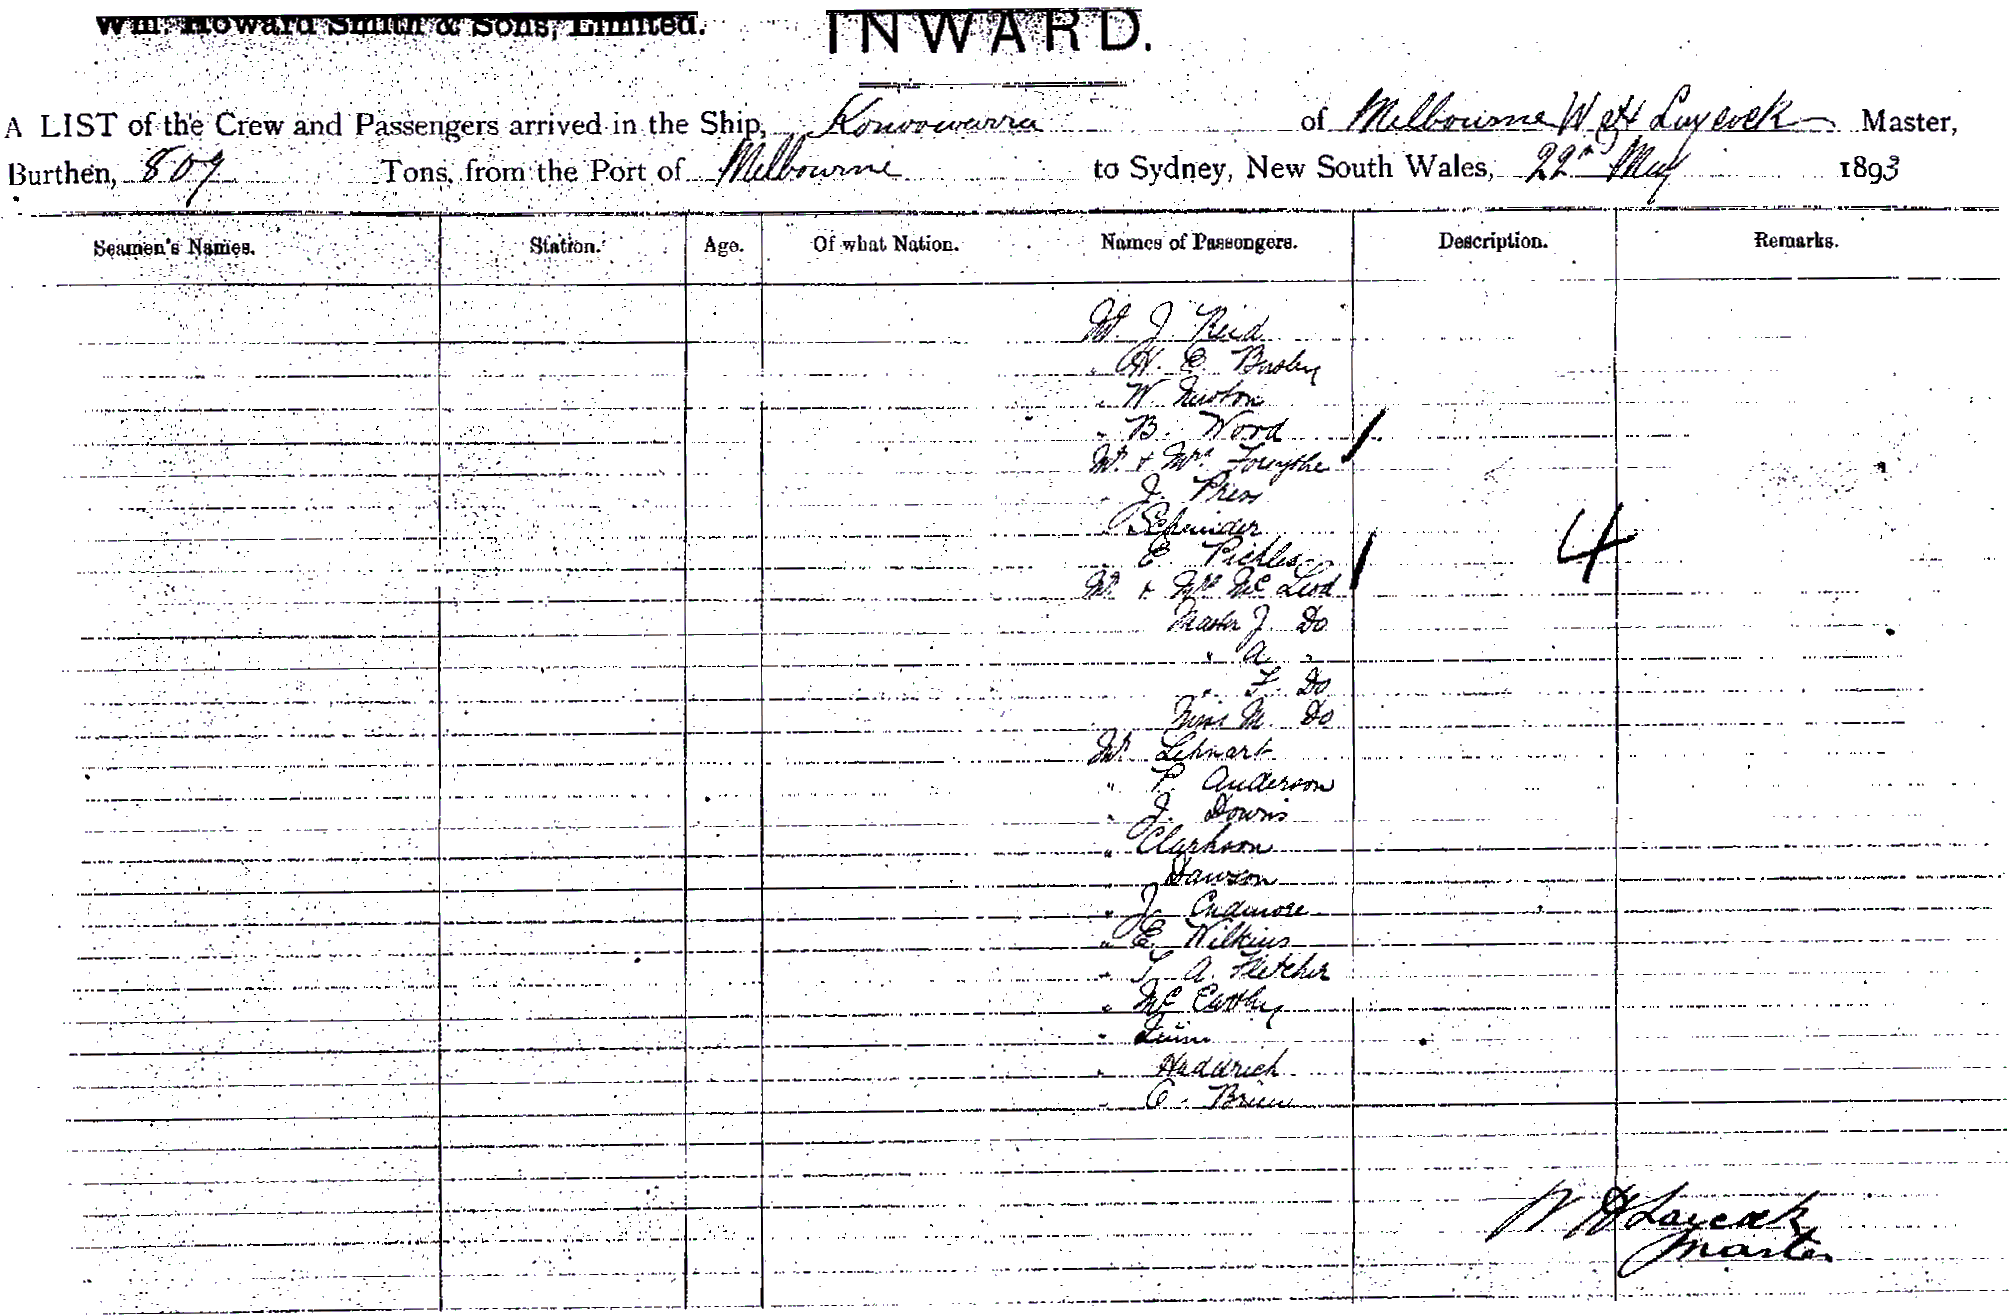 Wm. Howard Smith & Sons, Limited.
INWARD.
A LIST of the Crew and Passengers arrived in the Ship, Konoowarra of Melbourne W H Laycock Master,
Burthen, 809 Tons, from the Port of Melbourne to Sydney, New South Wales, 22nd May 1893
Seamen's Names. Station. Age. Of what Nation. Names of Passengers. Description. Remarks.
Mr. J Reid
" H. E.
" W Newton
" B. Wood
Mr & Mrs Forsythe
" J.
" Schneider
" E Pickles
4
Mr & Mrs Mc Leod
Master J Do
" A "
" F. Do
Miss M. Do
Mr Lehnart
" P. Anderson
" J. Downs
" Clarkson
" Dawson
" J
" E. Wilkins
" T A. Fletcher
" Mc
" Quinn
" Hadderich
" O. Brien
W H Laycock
Master